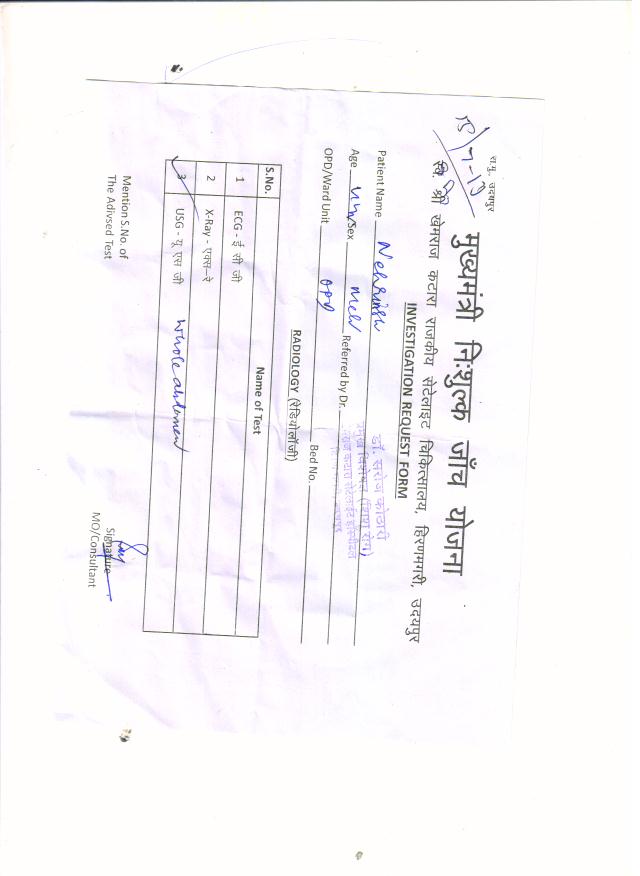 रा.मु., उदयपुर
मुख्यमंत्री निःशुल्क जाँच योजना
स्व. श्री खेमराज कटारा राजकीय सेटेलाइट चिकित्सालय, हिरणमगरी, उदयपुर
INVESTIGATION REQUEST FORM
Patient Name
Age Sex Male Referred by Dr. डॉ. सरोज कोठारी
OPD/Ward Unit OPD Bed No.
RADIOLOGY (रेडियोलॉजी)
S.No. Name of Test
1 ECG - ई सी जी
2 X-Ray - एक्स-रे
3 USG - यू एस जी whole abdomen
Mention S.No. of
The Adivsed Test
Signature
MO/Consultant